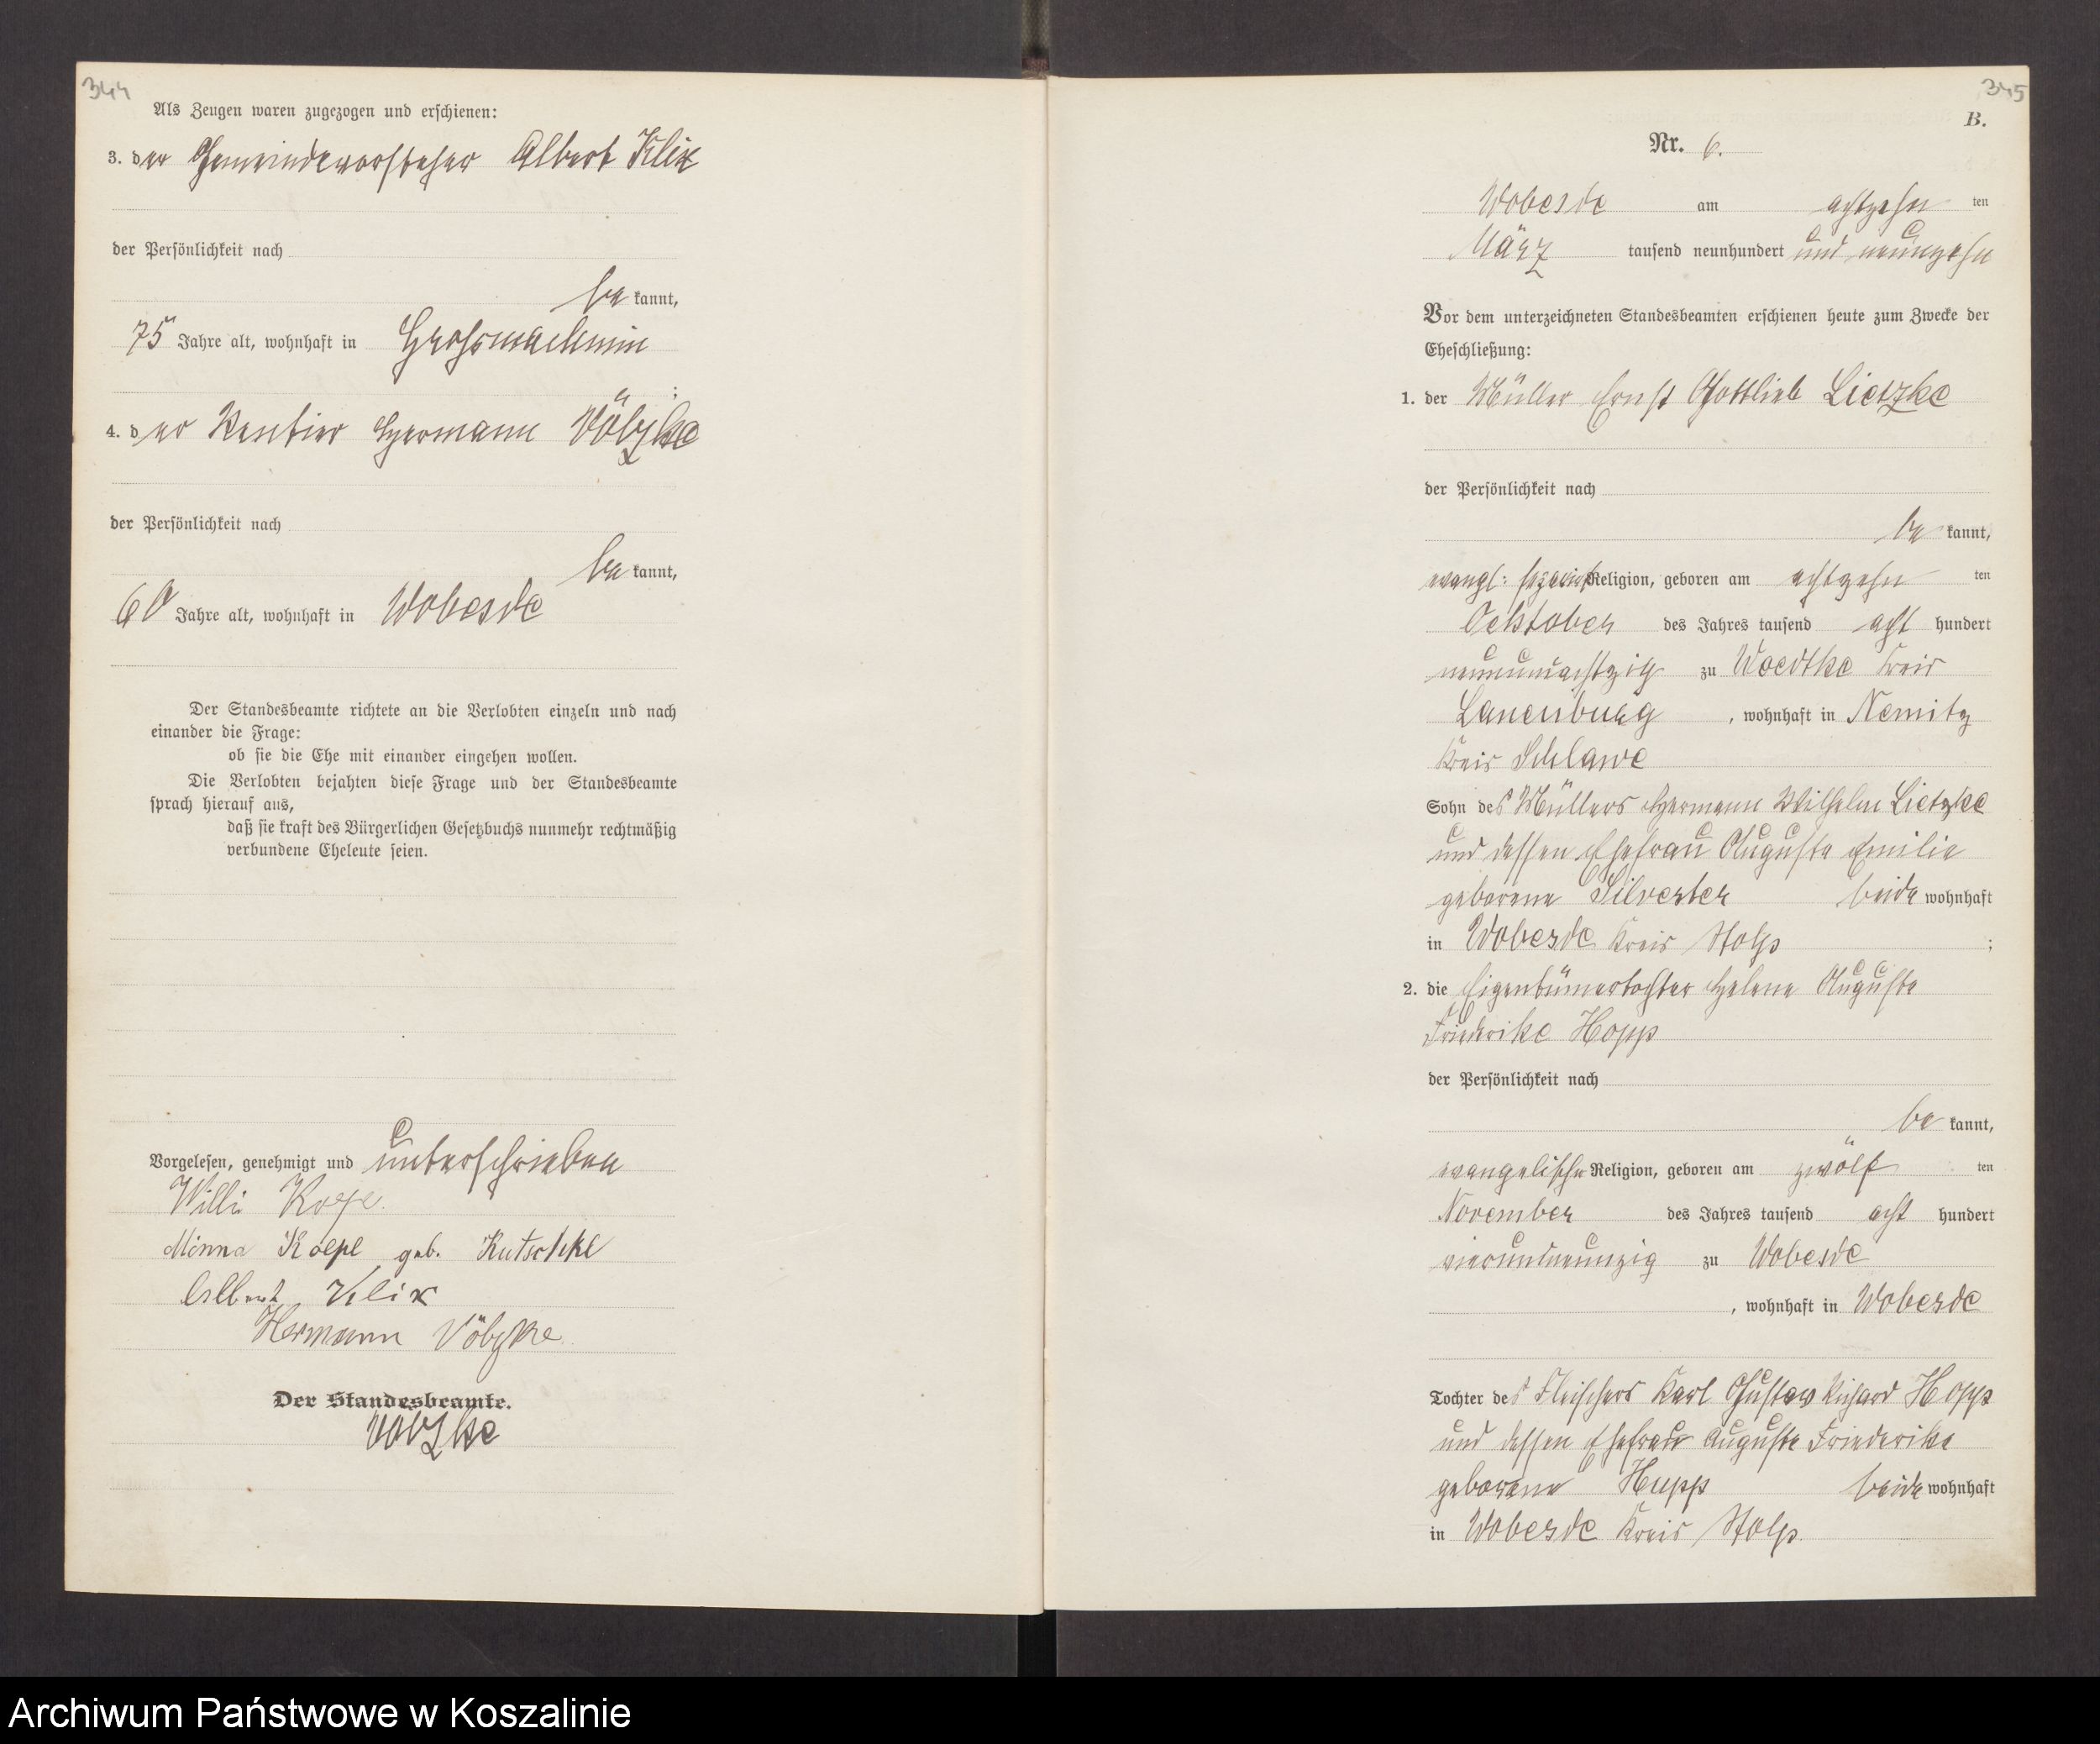 344
Als Zeugen waren zugezogen und erschienen:
3. der Gemeindevorsteher Albert Klix
der Persönlichkeit nach
be kannt,
75 Jahre alt, wohnhaft in Grossmachmin
;
4. der Rentier Hermann Völzke
der Persönlichkeit nach
be kannt,
60 Jahre alt, wohnhaft in Wobesde
Der Standesbeamte richtete an die Verlobten einzeln und nach
einander die Frage:
ob sie die Ehe mit einander eingehen wollen.
Die Verlobten bejahten diese Frage und der Standesbeamte
sprach hierauf aus,
daß sie kraft des Bürgerlichen Gesetzbuchs nunmehr rechtmäßig
verbundene Eheleute seien.
Vorgelesen, genehmigt und unterschrieben
Willi
Minna Koepe geb. Kutschke
Albert Klix
Hermann Völzke
Der Standesbeamte.
Völzke
345
B.
Nr. 6.
Wobesde am achtzehn ten
März tausend neunhundert und neunzehn
Vor dem unterzeichneten Standesbeamten erschienen heute zum Zwecke der
Eheschließung:
1. der Müller Ernst Gottlieb Lietzke
der Persönlichkeit nach
be kannt,
evangl: Religion, geboren am achtzehn ten
Ocktober des Jahres tausend acht hundert
neunundachtzig zu Woedtke Kreis
Lauenburg , wohnhaft in Nemitz
Kreis Schlawe
Sohn des Müllers Hermann Wilhelm Lietzke
und dessen Ehefrau Auguste Emilie
geborene Silvester beide wohnhaft
in Wobesde Kreis Stolp ;
2. die Eigentümertochter Helene Auguste
Friederike Hopp
der Persönlichkeit nach
be kannt,
evangelische Religion, geboren am zwölf ten
November des Jahres tausend acht hundert
vierundneunzig zu Wobesde
, wohnhaft in Wobesde
Tochter des Fleischers Karl Gustav Richard Hopp
und dessen Ehefrau Auguste Friederike
geborene Hupp beide wohnhaft
in Wobesde Kreis Stolp.
Archiwum Państwowe w Koszalinie